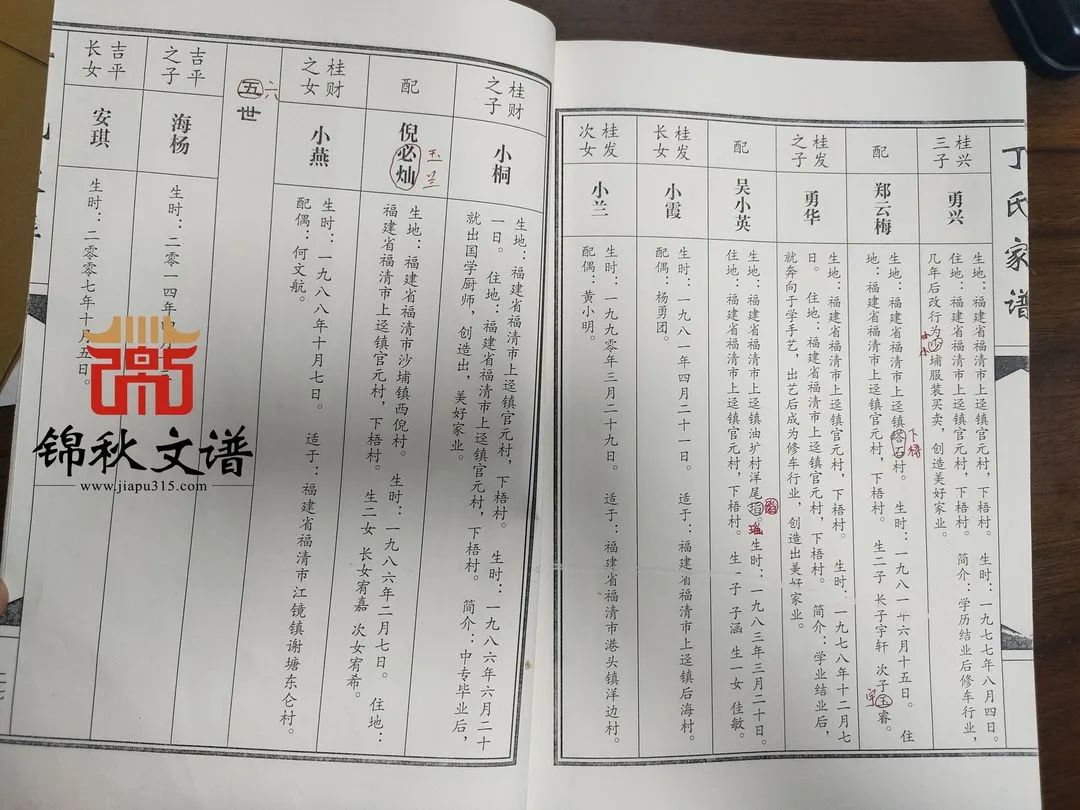 丁氏家谱
桂兴
三子
勇兴
生地：福建省福清市上迳镇官元村，下梧村。 生时：一九七七年八月四日。
住地：福建省福清市上迳镇官元村，下梧村。 简介：学历结业后修车行业，
几年后改行为四埔服装买卖，创造美好家业。
配
郑云梅
生地：福建省福清市上迳镇塔石村。 生时：一九八一年六月十五日。 住
下梧
地：福建省福清市上迳镇官元村，下梧村。 生二子 长子宇轩 次子玉睿。
宇
桂发
之子
勇华
生地：福建省福清市上迳镇官元村，下梧村。 生时：一九七八年十二月七
日。 住地：福建省福清市上迳镇官元村，下梧村。 简介：学业结业后，
就奔向于学手艺，出艺后成为修车行业，创造出美好家业。
配
吴小英
生地：福建省福清市上迳镇油圹村洋尾 。生时：一九八三年三月二十日。
住地：福建省福清市上迳镇官元村，下梧村。 生一子 子涵 生一女 佳敏。
桂发
长女
小霞
生时：一九八一年四月二十一日。 适于：福建省福清市上迳镇后海村。
配偶：杨勇团。
桂发
次女
小兰
生时：一九九零年三月二十九日。 适于：福建省福清市港头镇洋边村。
配偶：黄小明。
桂财
之子
小桐
生地：福建省福清市上迳镇官元村，下梧村。 生时：一九八六年六月二十
一日。 住地：福建省福清市上迳镇官元村，下梧村。 简介：中专毕业后，
就出国学厨师，创造出，美好家业。
配
倪必灿
玉兰
生地：福建省福清市沙埔镇西倪村。 生时：一九八六年二月七日。 住地：
福建省福清市上迳镇官元村，下梧村。 生二女 长女宥嘉 次女宥希。
桂财
之女
小燕
生时：一九八八年十月七日。 适于：福建省福清市江镜镇谢塘东仑村。
配偶：何文航。
五世
六
吉平
之子
海杨
生时：二零一四年
吉平
长女
安琪
生时：二零零七年十月五日。
锦秋文谱
www.jiapu315.com